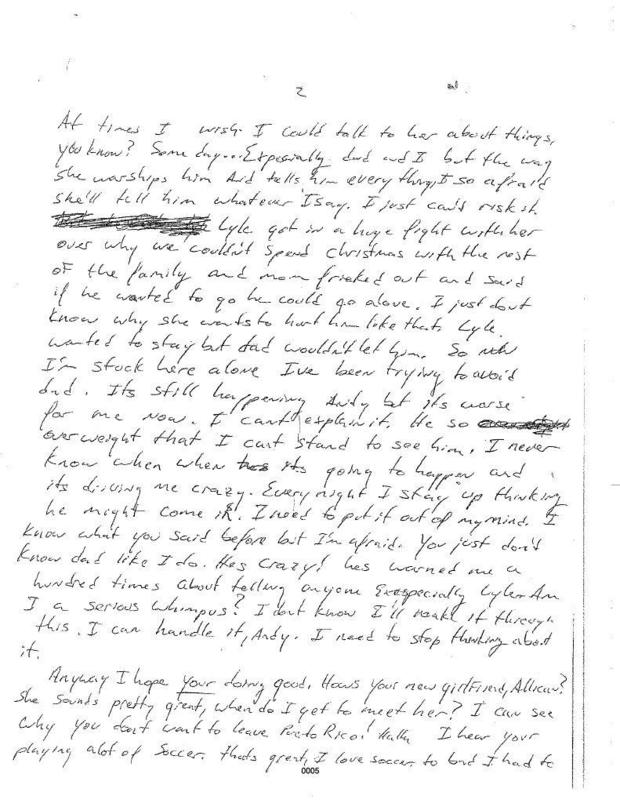 2
At times I wish I could talk to her about things,
you know? Some day... Expecially dad and I but the way
she worships him and tells him everything, I so afraid
she'll tell him whatever I say. I just can't risk it.
Lyle got in a huge fight with her
over why we couldn't spend Christmas with the rest
of the family and mom friaked out and said
if he wanted to go he could go alone. I just dont
know why she wants to hurt him like that. Lyle
wanted to stay but dad wouldn't let him. So now
I'm stuck here alone I've been trying to avoid
dad. Its still happening Andy but its worse
for me now. I cant explain it. He so
overweight that I cant stand to see him. I never
know when when its going to happen and
its driving me crazy. Every night I stay up thinking
he might come in. I need to put it out of my mind. I
know what you said before but I'm afraid. You just don't
know dad like I do. Hes crazy! hes warned me a
hundred times about telling anyone Exespecially Lyle. Am
I a serious whimpus? I dont know I'll make it through
this. I can handle it, Andy. I need to stop thinking about
it.
Anyway I hope your doing good. Hows your new girlfriend, Allican?
She sounds pretty great, when do I get to meet her? I can see
why you dont want to leave Puerto Rico! HaHa I hear your
playing alot of soccer. thats great, I love soccer. to bad I had to
0005